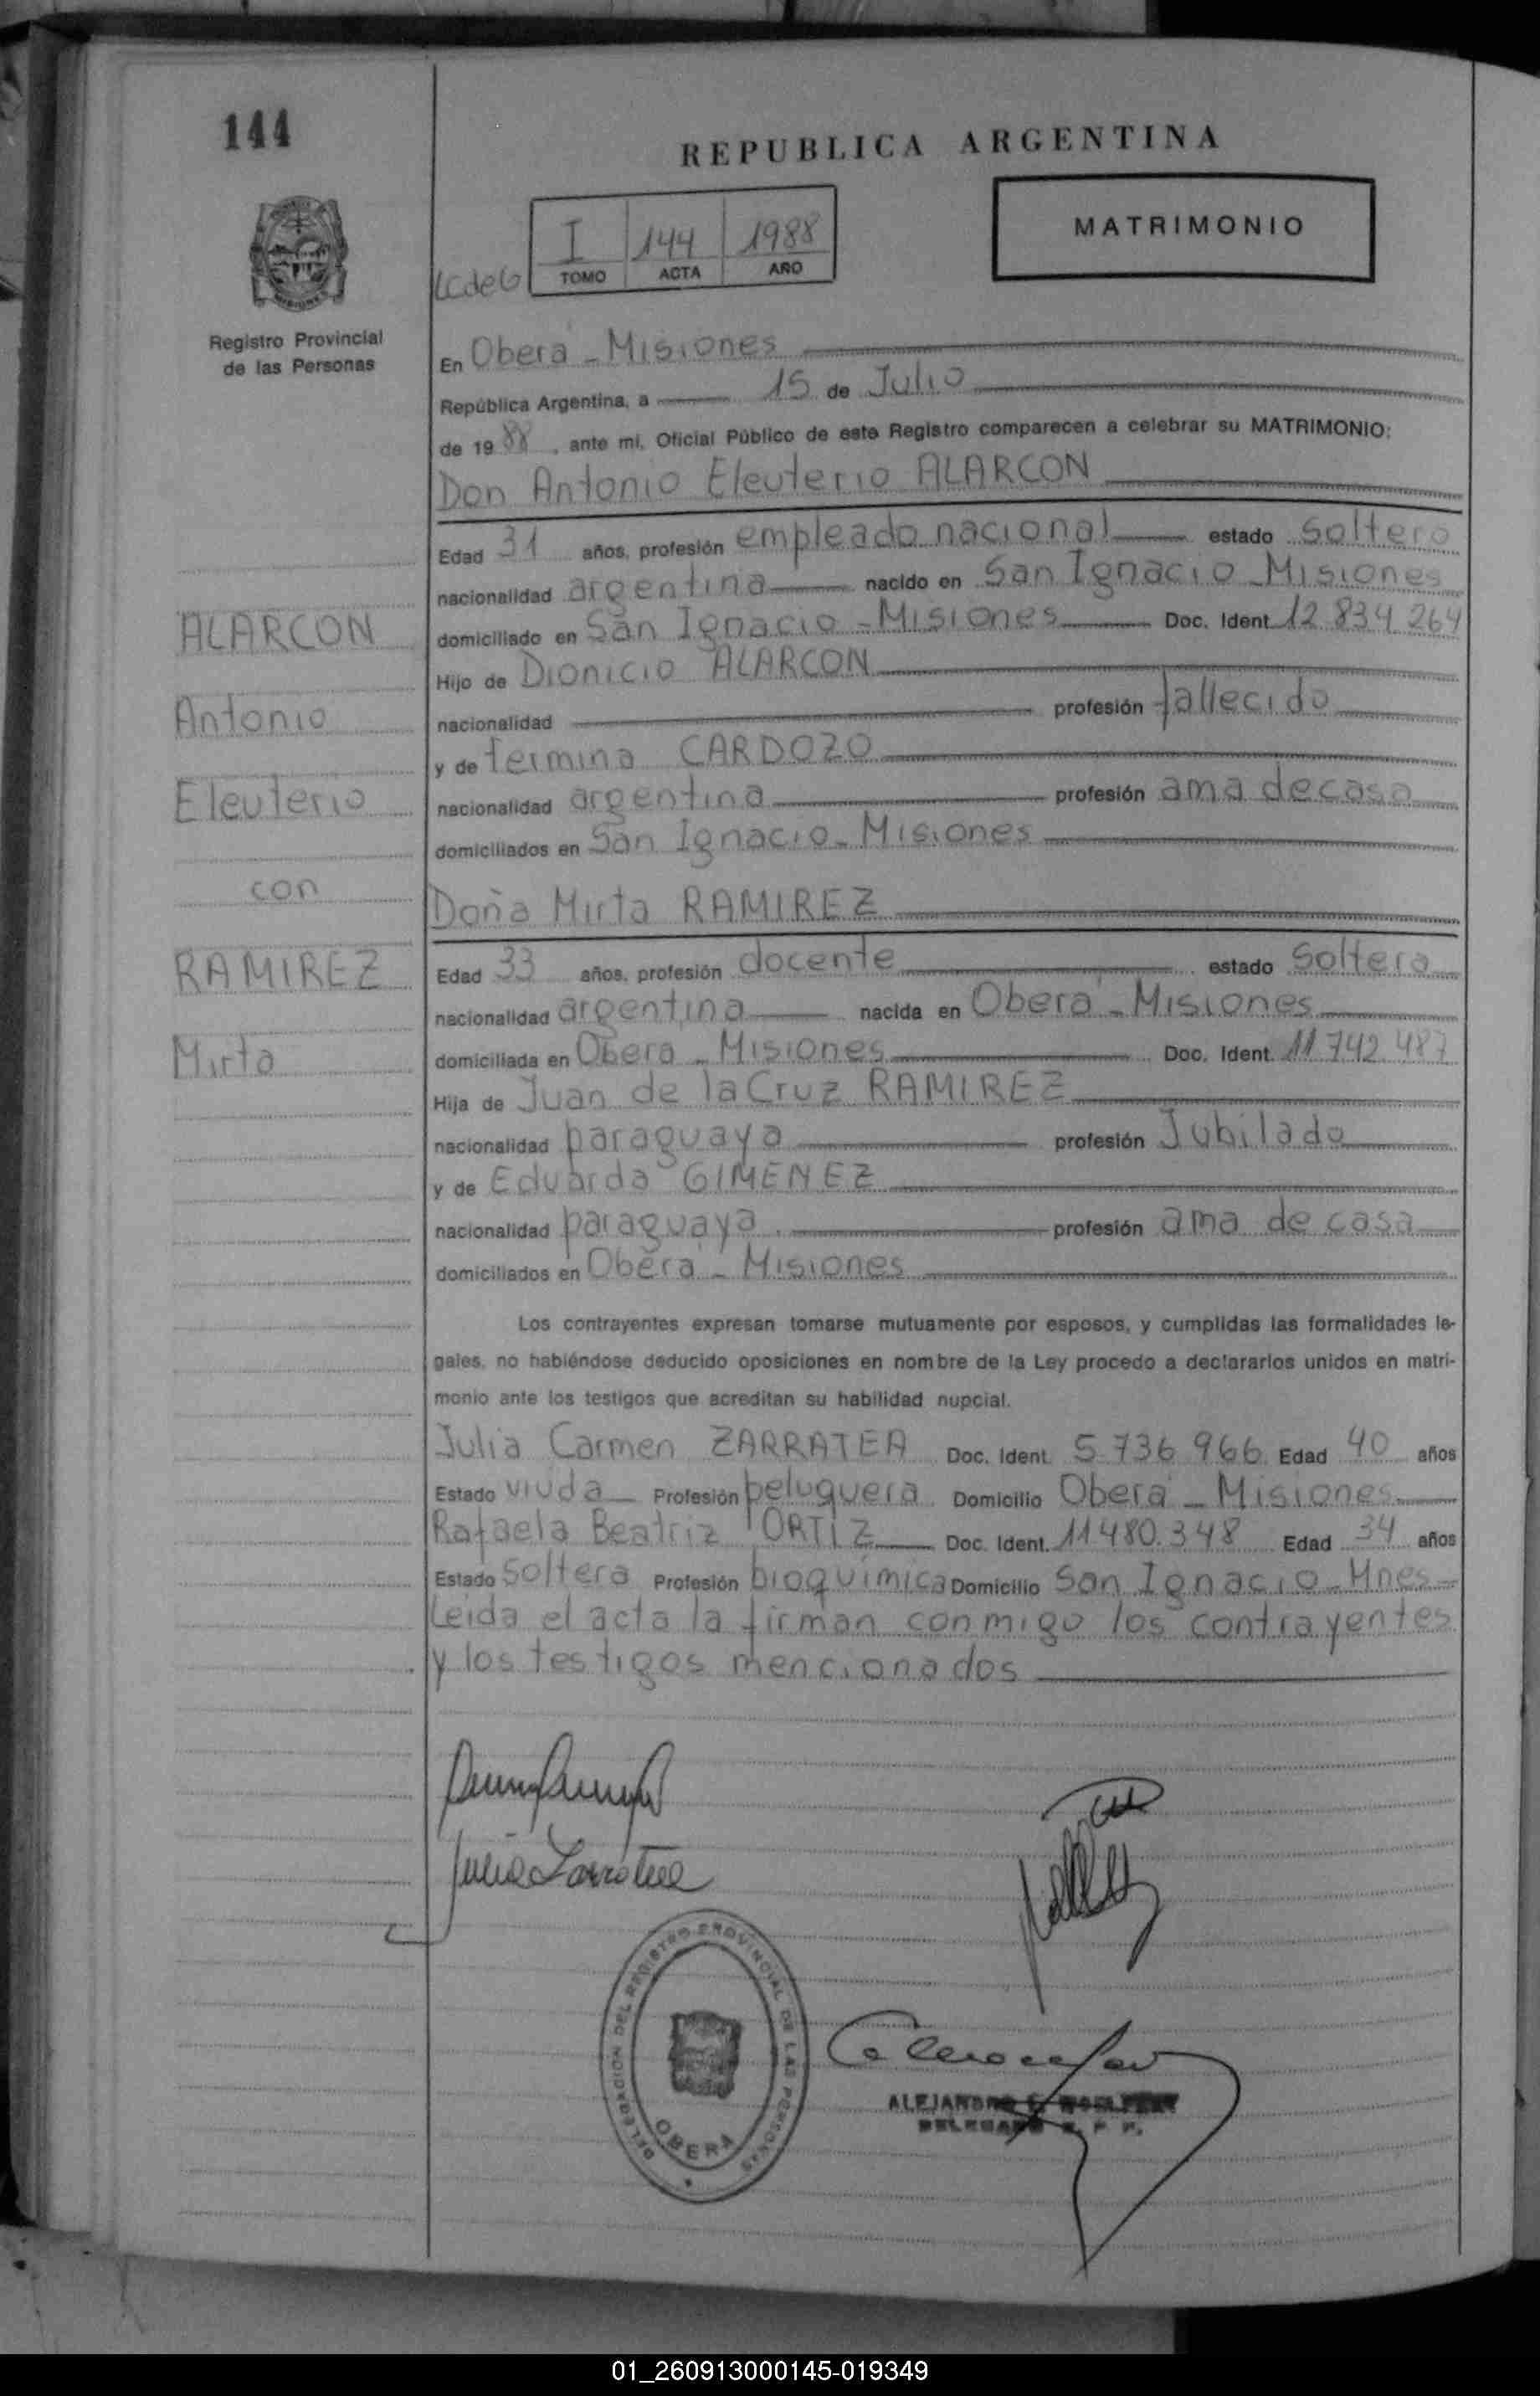 144
REPUBLICA ARGENTINA
I 144 1988
TOMO ACTA AÑO
MATRIMONIO
MISIONES
Registro Provincial
de las Personas
En Oberá - Misiones
República Argentina, a 15 de Julio
de 19 88, ante mí, Oficial Público de este Registro comparecen a celebrar su MATRIMONIO:
Don Antonio Eleuterio ALARCON
Edad 31 años, profesión empleado nacional estado soltero
nacionalidad argentina nacido en San Ignacio - Misiones
domiciliado en San Ignacio - Misiones Doc. Ident. 12 834 264
Hijo de Dionicio ALARCON
nacionalidad profesión fallecido
y de fermina CARDOZO
nacionalidad argentina profesión ama de casa
domiciliados en San Ignacio - Misiones
Doña Mirta RAMIREZ
Edad 33 años, profesión docente estado soltera
nacionalidad argentina nacida en Oberá - Misiones
domiciliada en Oberá - Misiones Doc. Ident. 11 742 487
Hija de Juan de la Cruz RAMIREZ
nacionalidad paraguaya profesión Jubilado
y de Eduarda GIMENEZ
nacionalidad paraguaya profesión ama de casa
domiciliados en Oberá - Misiones
ALARCON
Antonio
Eleuterio
con
RAMIREZ
Mirta
Los contrayentes expresan tomarse mutuamente por esposos, y cumplidas las formalidades le-
gales, no habiéndose deducido oposiciones en nombre de la Ley procedo a declararlos unidos en matri-
monio ante los testigos que acreditan su habilidad nupcial.
Julia Carmen ZARRATEA Doc. Ident. 5 736 966 Edad 40 años
Estado viuda Profesión peluquera Domicilio Oberá - Misiones
Rafaela Beatriz ORTIZ Doc. Ident. 11.480.348 Edad 34 años
Estado soltera Profesión bioquímica Domicilio San Ignacio - Mnes -
Leida el acta la firman conmigo los contrayentes
y los testigos mencionados
Julia Zarratea
DELEGACION DEL REGISTRO PROVINCIAL DE LAS PERSONAS
OBERA
ALEJANDRO
DELEGADO R. P. P.
01_260913000145-019349